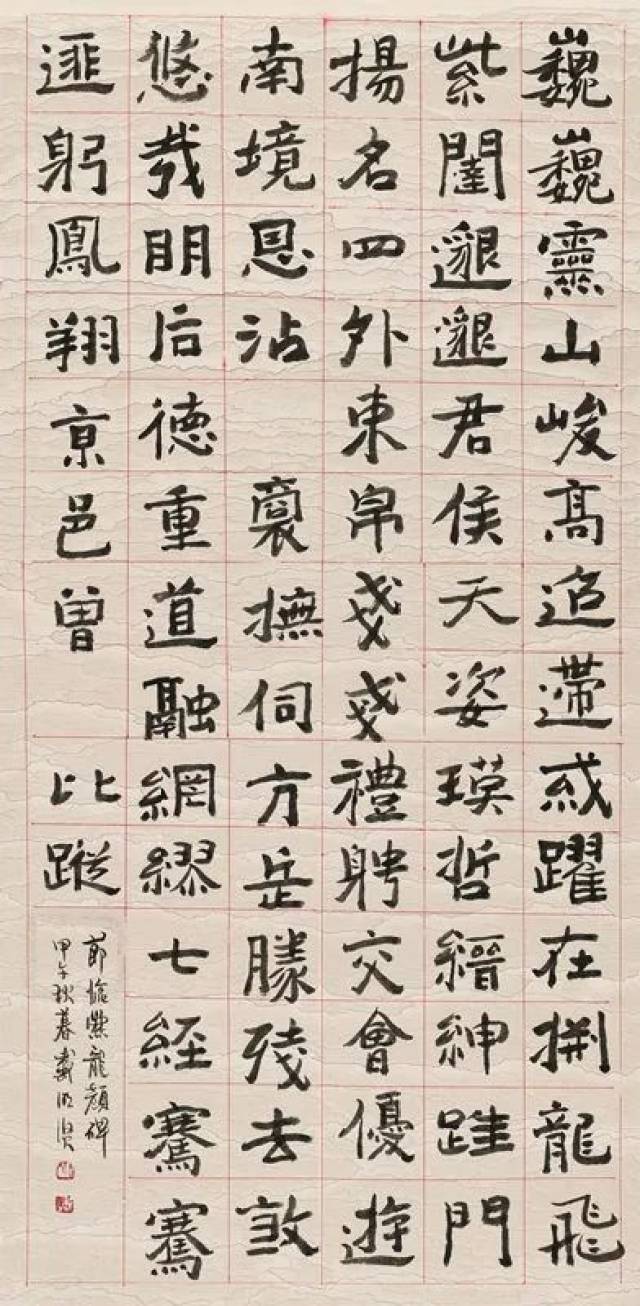 巍巍靈山峻高迢遰或躍在捌龍飛
紫闥邈邈君侯天姿瑛哲縉紳踵門
揚名四外東帛戔戔禮聘交會優遊
南境恩沾 裔撫伺方岳勝殘去敦
悠哉明后德重道融綢繆七經騫騫
匪躬鳳翔京邑曾 比蹤
節臨爨龍顏碑
甲午秋暮戴明賢